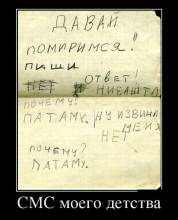 ДАВАЙ
ПОМИРИМСЯ!
ПИШИ
ОТВЕТ!
НЕТ НИЗАШТО
ПОЧЕМУ?
ПАТАМУ. НУ ИЗВИНИ
МЕНЯ
НЕТ
ПОЧЕМУ?
ПАТАМУ.
СМС моего детства